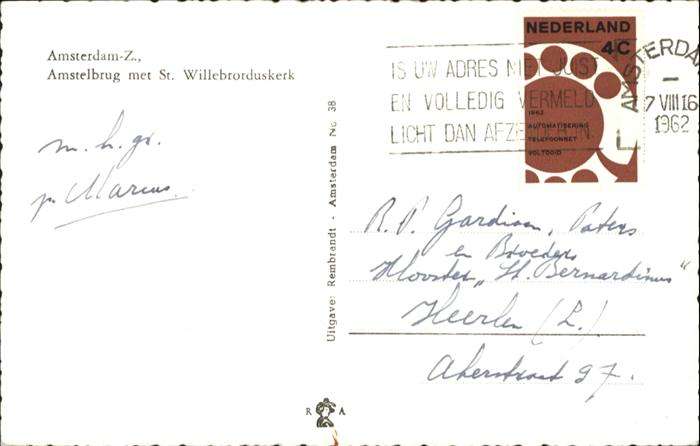 Amsterdam-Z.,
Amstelbrug met St. Willebrorduskerk
m. h. gr.
p. Marcus.
Uitgave: Rembrandt - Amsterdam No 38
R A
NEDERLAND
4 C
1962
AUTOMATISERING
TELEFOONNET
VOLTOOID
IS UW ADRES NIET JUIST
EN VOLLEDIG VERMELD
LICHT DAN AFZENDER IN
AMSTERDAM
7 VIII 16
1962
R. P. Gardiaan, Paters
en Broeders
Klooster „St. Bernardinus"
Heerlen (L.)
Akerstraat 97.